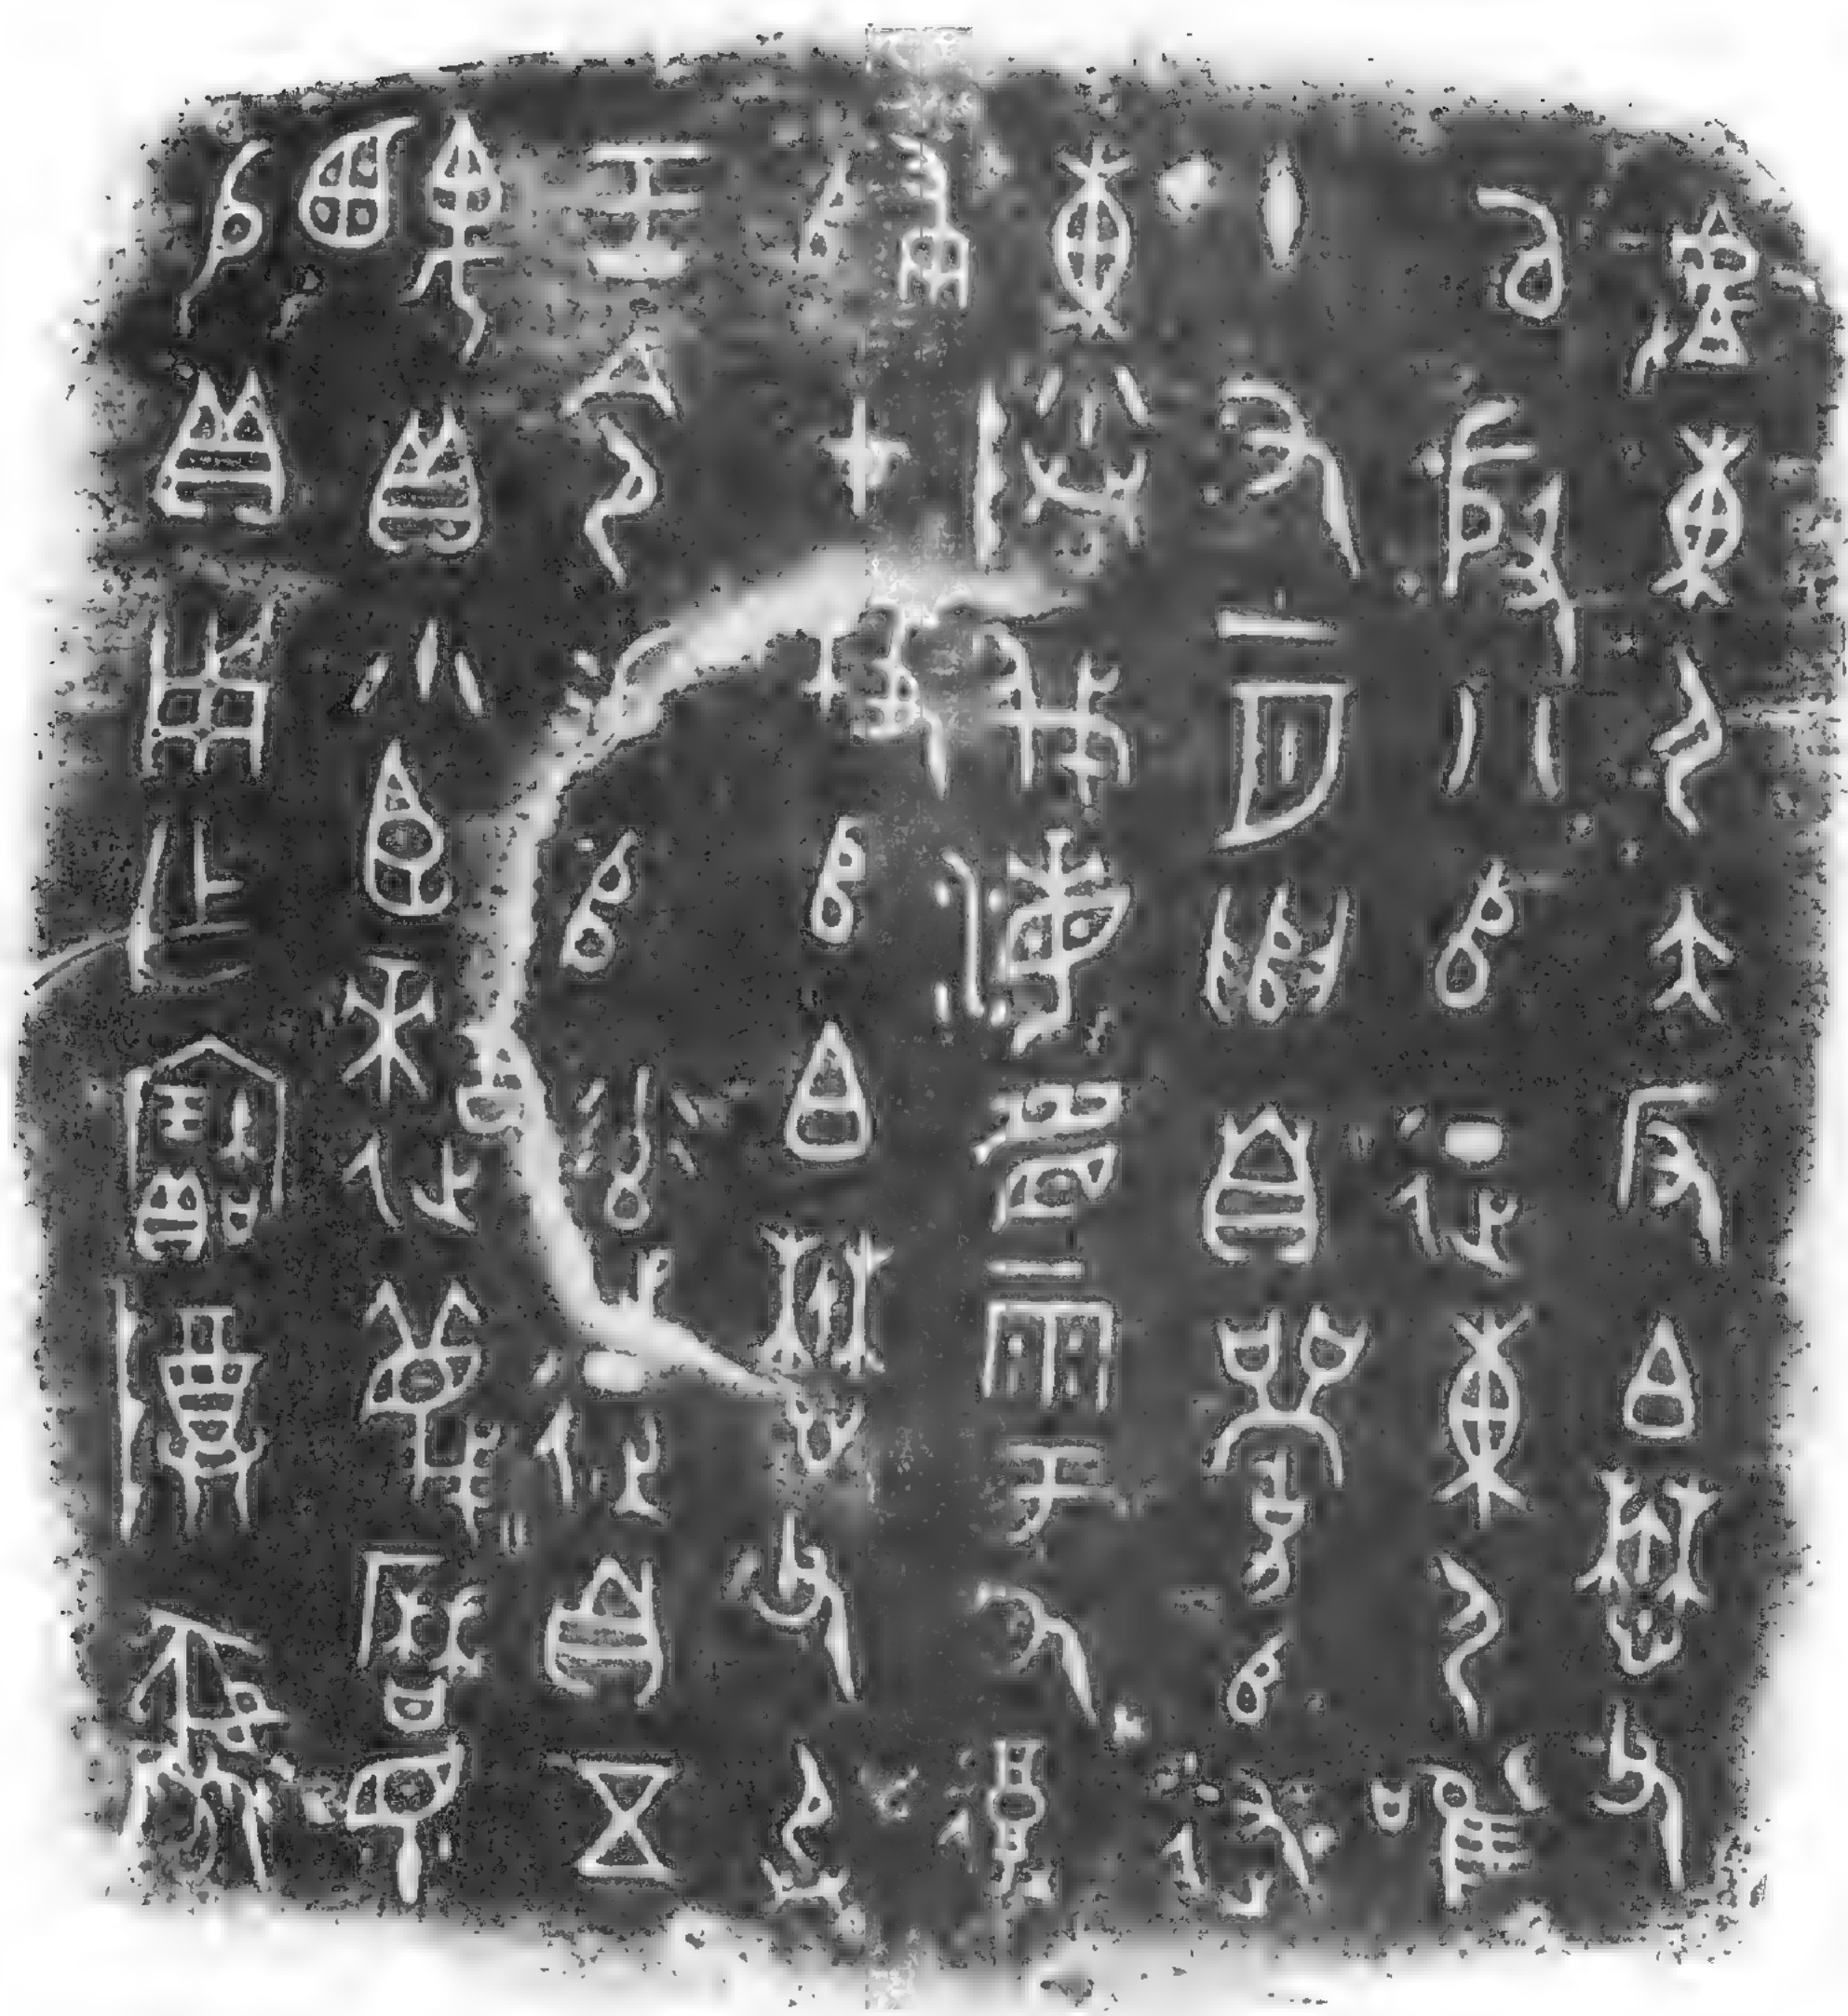 䖒東尸大反白懋父
以殷八𠂤征東尸唯
十又一月遣自𩫨𠂤述
東陕伐海眉雩厥復
歸才牧𠂤白懋父承
王令易𠂤達征自五
齵貝小臣謎蔑曆眔
易貝用乍寶尊彝